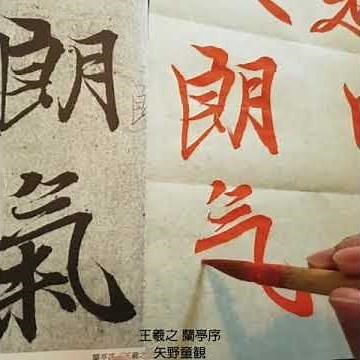 朗
氣
朗
气
王羲之 蘭亭序
矢野童観